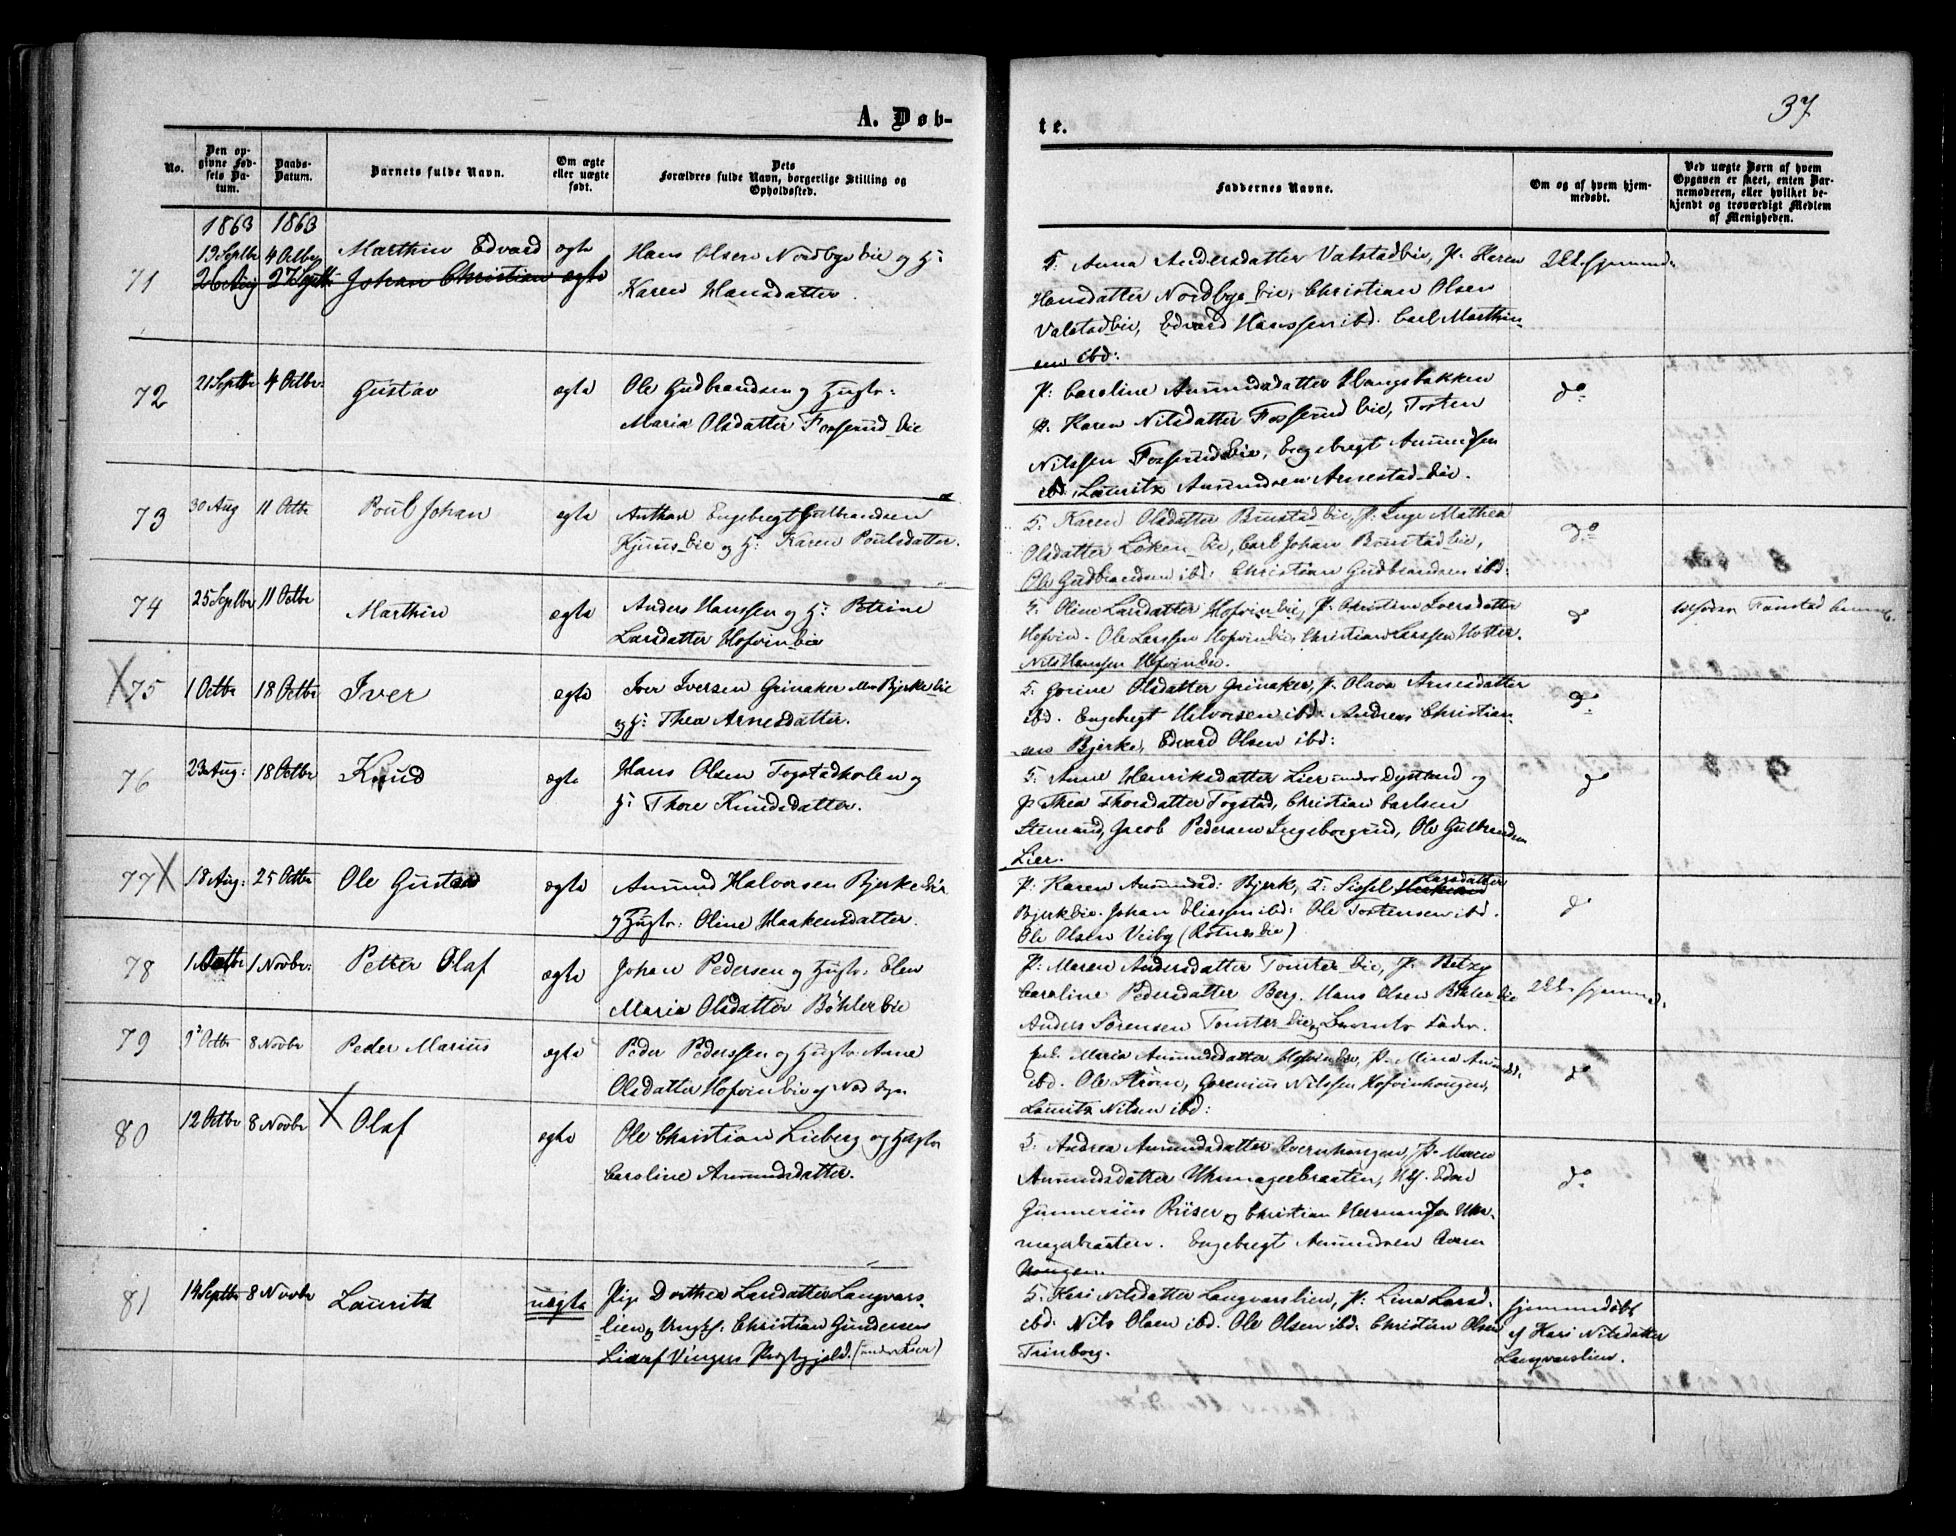 37
A. Døb-
te.
No.
Den op-
givne Fød-
sels Da-
tum.
Daabs-
Datum.
Barnets fulde Navn.
Om ægte
eller uægte
født.
Dets
Forældres fulde Navn, borgerlige Stilling og
Opholdssted.
Faddernes Navne.
Om og af hvem hjem-
medøbt.
Ved uægte Børn af hvem
Opgaven er skeet, enten Bar-
nemoderen, eller hvilket be-
kjendt og troværdigt Medlem
af Menigheden.
1863 1863
71
13 Septbr 4 Octbr Marthin Edvard ægte
26 Aug 27 Septb Johan Christian ægte
Hans Olsen Nordbye Eie og H:
Karen Hansdatter
G: Anna Andersdatter Valstad Eie, P: Karen
Hansdatter Nordbye Eie, Christian Olsen
Valstad Eie, Edvard Hanssen ibd. Carl Marthin-
sen ibd:
72 21 Septbr 4 Octbr: Gustav ægte
Ole Gudbrandsen og Hustr:
Maria Olsdatter Fosserud Eie
P: Caroline Amundsdatter Haugsbakken
P: Karen Nilsdatter Fosserud Eie, Tosten
Nilssen Fosserud Eie, Engebregt Amundsen
ibd, Lauritz Amundsen Arnestad Eie.
do
73 30 Aug 11 Octbr Poul Johan ægte
Engebregt Gulbrandsen
Kjuus Eie og H: Karen Poulsdatter.
G: Karen Olsdatter Bunstad Eie, P: Inge Mathea
Olsdatter Løken Eie, Carl Johan Bonstad Eie,
Ole Gudbrandsen ibd. Christian Gudbrandsen ibd.
do
74 25 Septbr 11 Octbr Marthin ægte
Anders Hanssen og H: Petrine
Larsdatter Hofvin Eie
G: Oline Larsdatter Hofvin Eie, P: Christine Iversdatter
Hofvin. Ole Larssen Hofvin Eie, Christian Larssen Hotter.
Nils Hanssen Hofvin Eie.
do
X 75 1 Octbr 18 Octbr Iver ægte
Iver Iversen Grinaker Bjerke Eie
og H: Thea Arnesdatter.
G: Gorine Olsdatter Grinaker, P: Olava Arnesdatter
ibd. Engebregt Halvorsen ibd. Andreas Christian-
sen Bjerke, Edvard Olsen ibd:
do
76 23 Aug: 18 Octbr Knud ægte
Hans Olsen Togstadholen og
H: Thore Knudsdatter.
G: Anne Henriksdatter Lier under og
P: Thea Thorsdatter Togstad, Christian Carlsen
Stenrud, Jacob Pedersen Ingeborgrud, Ole Gulbrandsen
Lier.
do
77 X 18 Aug: 25 Octbr Ole Gustav ægte
Amund Halvorsen Bjerke Eie
og Hustr: Oline Haakensdatter.
P: Karen Amundsd: Bjerk, G: Sissel Larsdatter
Bjerk Eie. Johan Eliassen ibd: Ole Tostensen ibd.
Ole Olsen Veiby (Rotnes Eie)
do
78 1 Octbr 1 Novbr: Petter Olaf ægte
Johan Pedersen og Hustr: Elen
Maria Olsdatter Bøhler Eie
P: Maren Andersdatter Tomter Eie, P: Betzy
Caroline Pedersdatter Berg. Hans Olsen Bøhler Eie
Anders Sørensen Tomter Eie, og Barnets Fader.
79 Octbr 8 Novbr Peder Marius ægte
Peder Pederssen og Hustr: Anne
Olsdatter Hofvin Eie
Maria Amundsdatter Hofvin Eie, P: Mina Amundsd.
ibd. Ole Strøm, Gorenius Nilssen Hofvinhougen,
Lauritz Nilsen ibd:
do
80 12 Octbr 8 Novbr X Olaf ægte
Ole Christian Lieberg og Hustr
Caroline Amundsdatter.
G: Andrea Amundsdatter Overnhougen, P: Maren
Amundsdatter Uhrmagerbraaten, Edon
Gunnersen Riiser og Christian Hermansen Uhr-
magerbraaten. Engebregt Amundsen Overn
hougen.
do
81 14 Septbr 8 Novbr Lauritz uægte
Pige Dorthea Larsdatter Langvars-
lien, og Ungk: Christian Gundersen
Lier af Vinger Prgtgjeld. (under Lier)
G: Kari Nilsdatter Langvarslien, P: Lina Larsd.
ibd. Nils Olsen ibd. Ole Olsen ibd. Christian Olsen
Trinborg.
hjemmedøbt
af Kari Nilsdatter
Langvarslien.